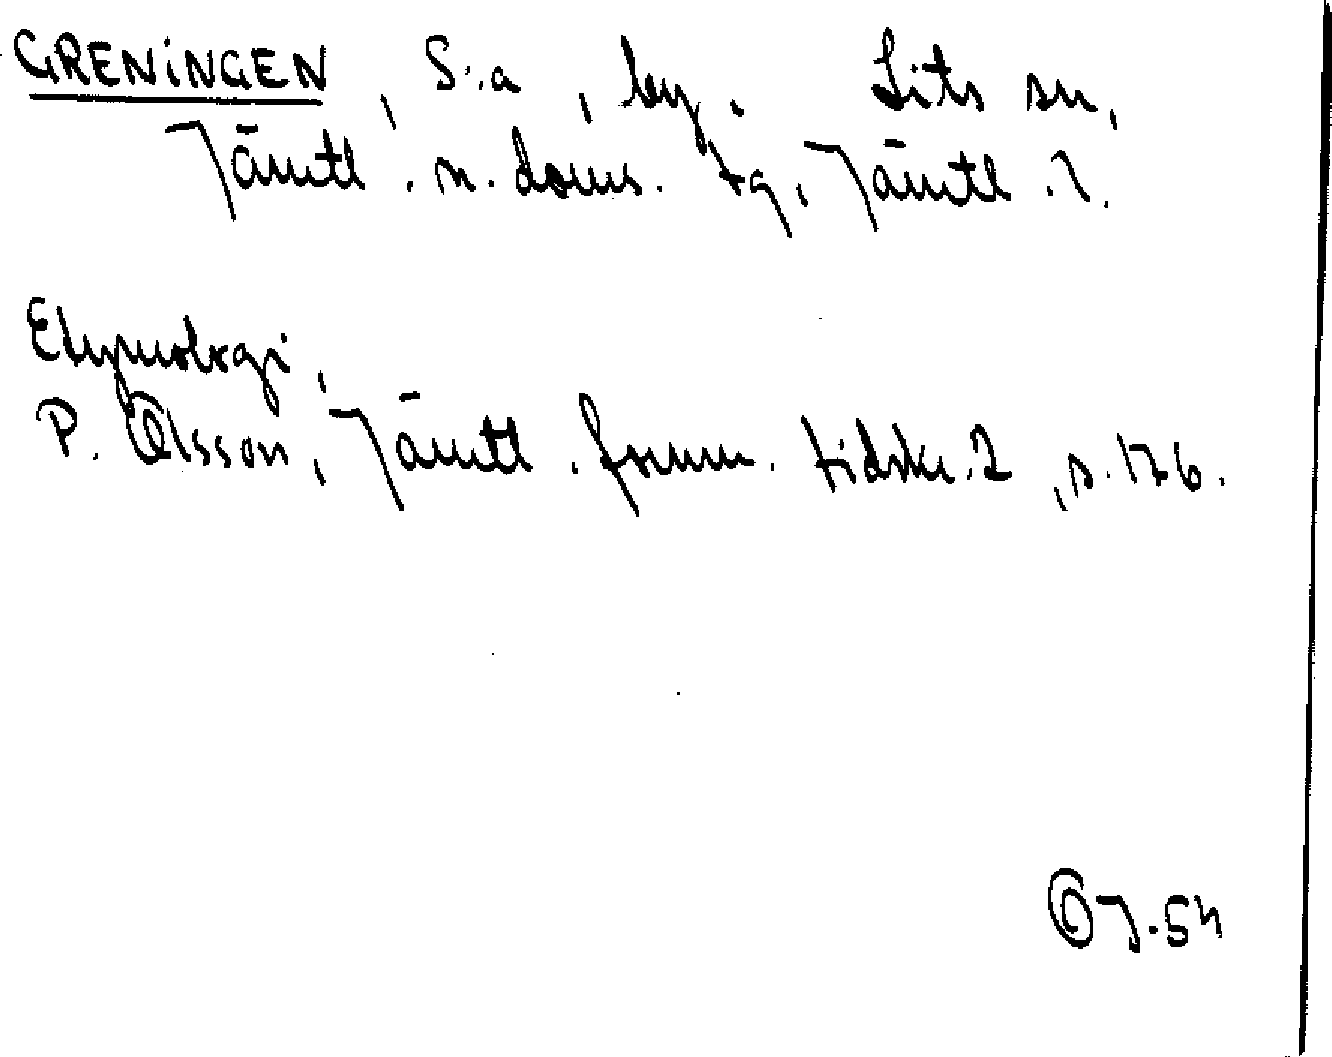 GRENINGEN, S:a, by. Lits sn,
Jämtl. n. doms. tg, Jämtl. l.
Etymologi,
P. Olsson, Jämtl. fornm. tidskr. 2, s. 126.
OJ.54